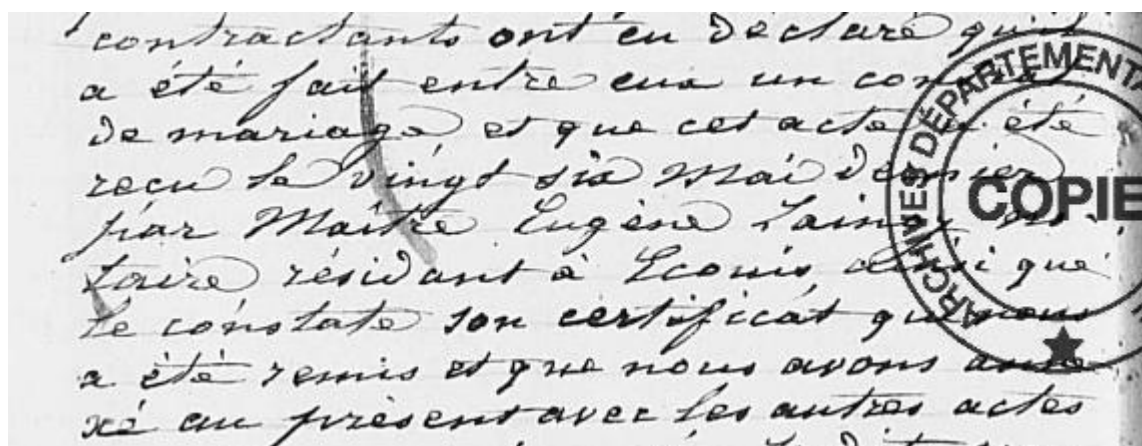 contractants ont en déclaré qu'il
a été fait entre eux un contrat
de mariage et que cet acte a été
reçu le vingt six Mai dernier
par Maître Eugène no-
taire résidant à Ecouis, ainsi que
le constate son certificat qui nous
a été remis et que nous avons anne
xé au présent avec les autres actes
ARCHIVES DÉPARTEMENTA
COPIE